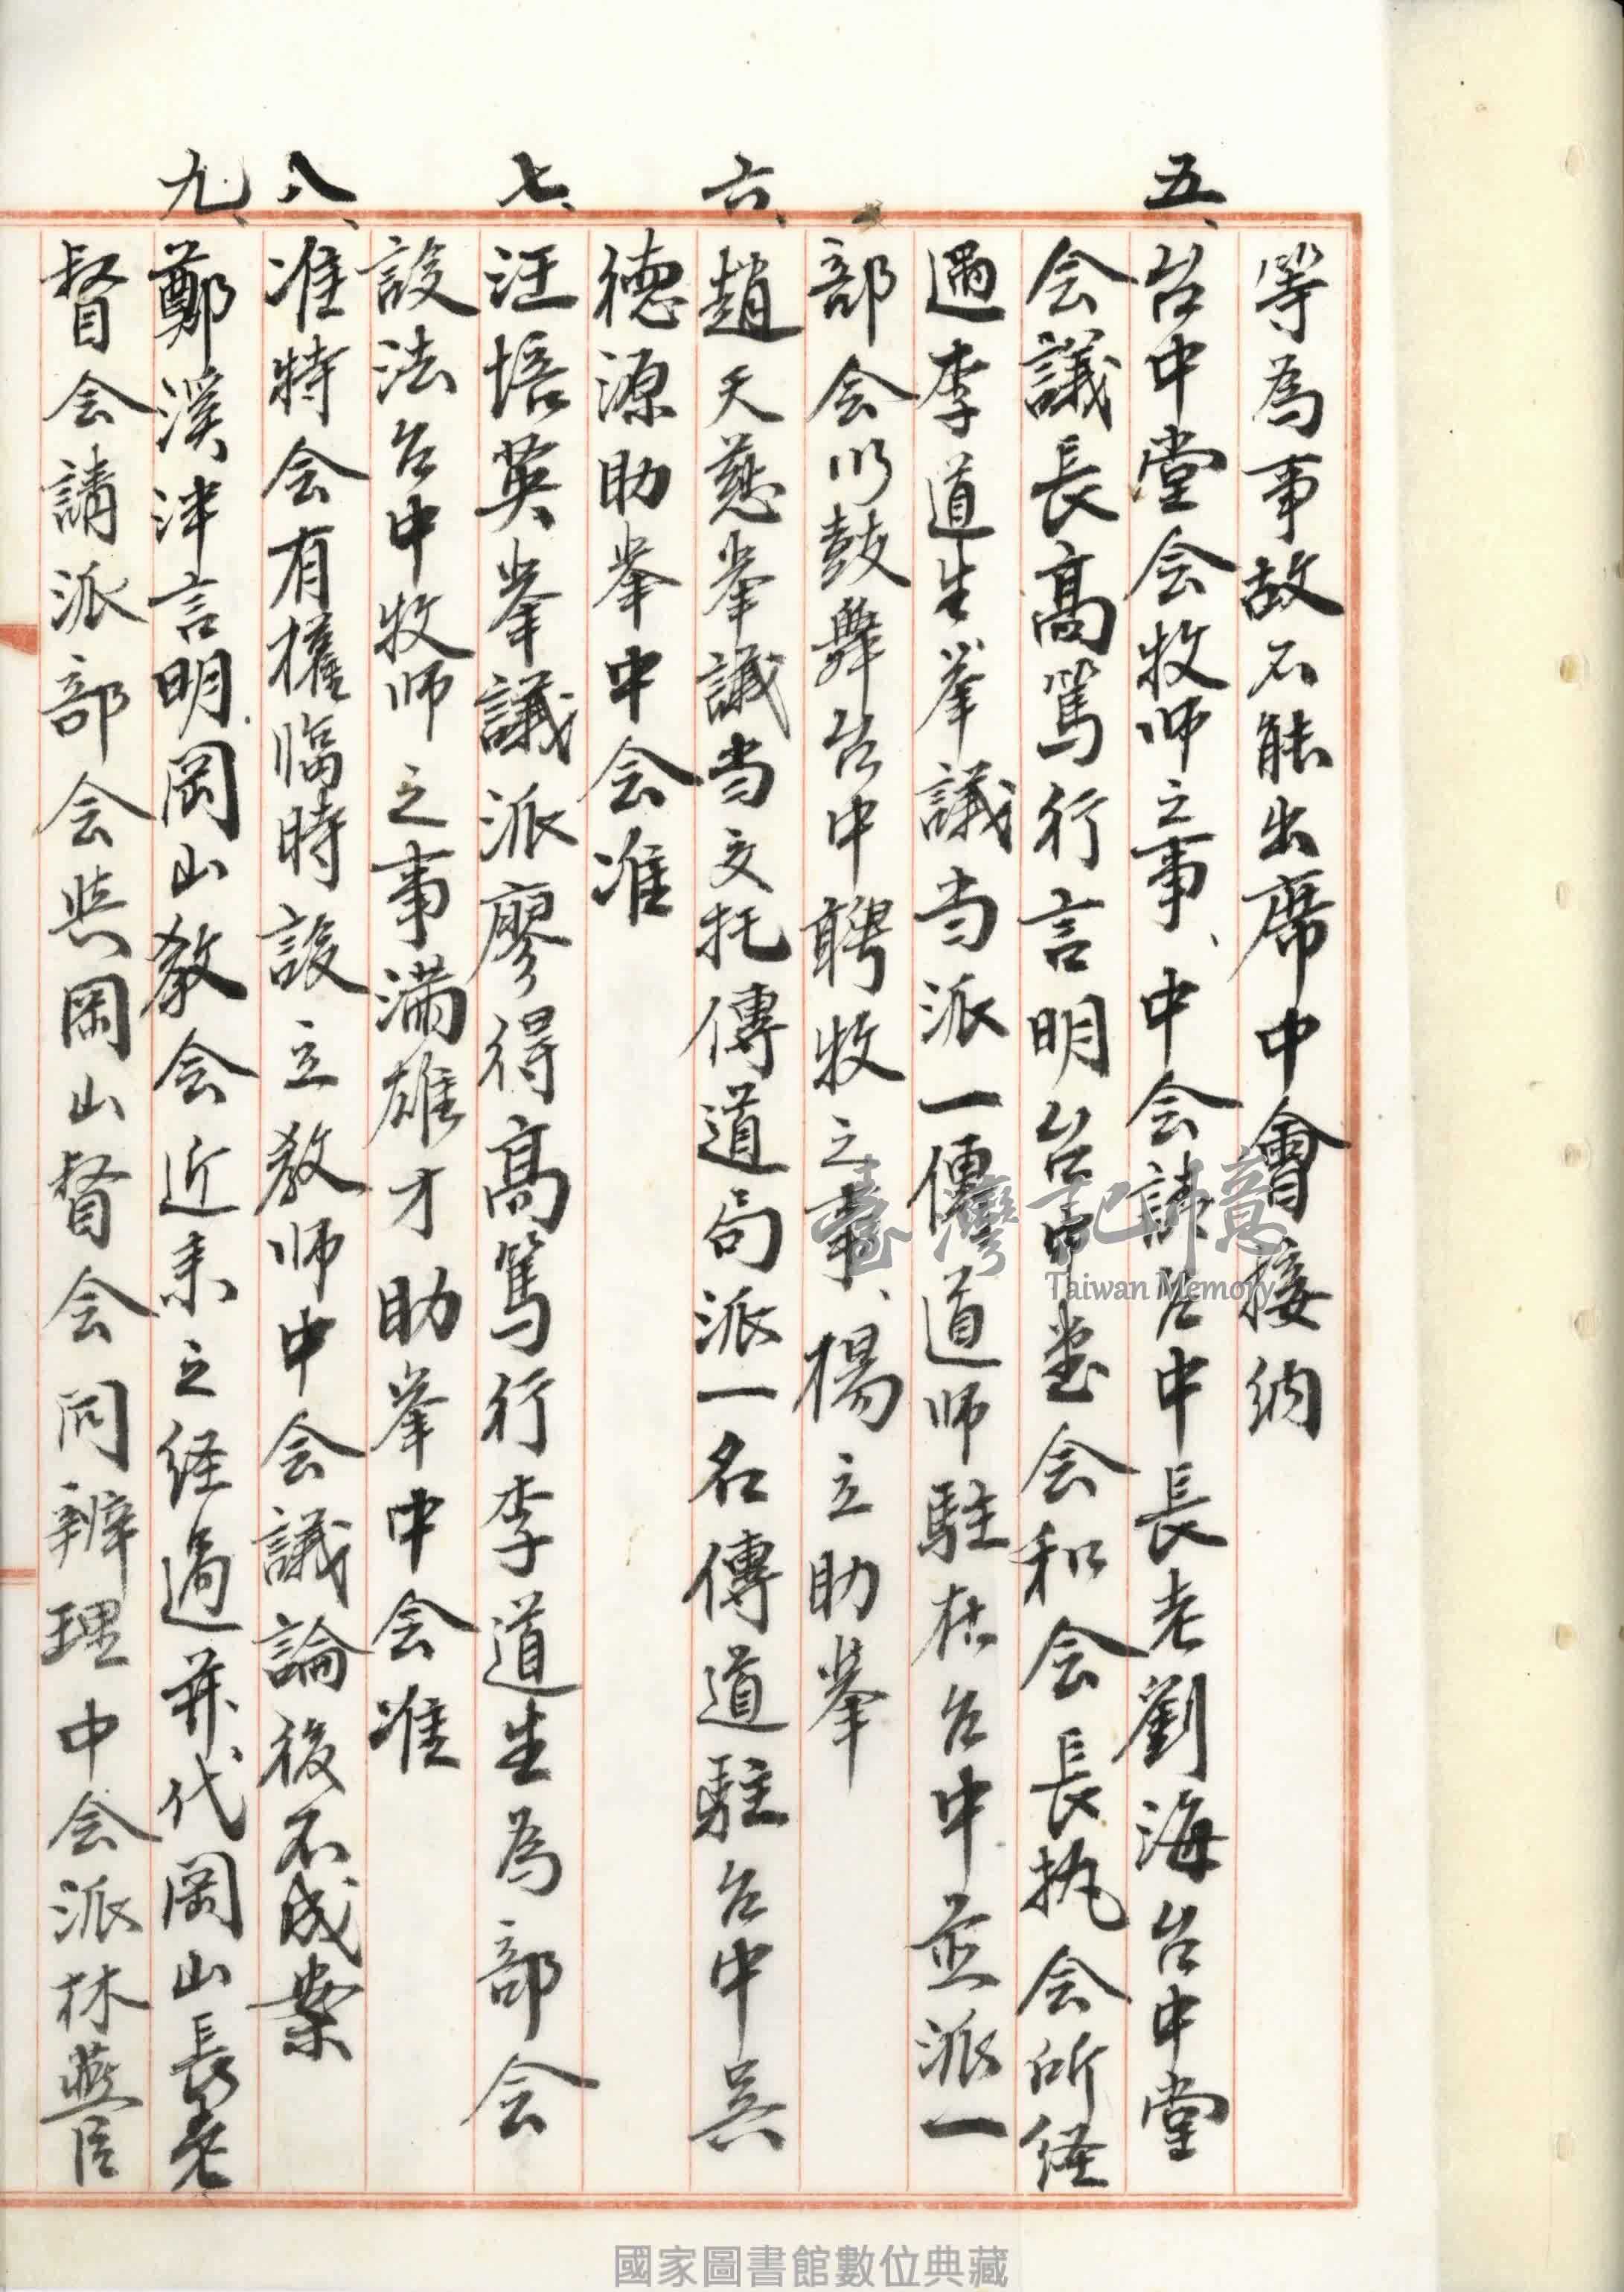 等為事故不能出席中會接納
五、台中堂会牧师之事、中会請台中長老劉海台中堂
会議長高篤行言明台中堂会和会長执会所经
過李道生举議当派一傳道师駐在台中並派一
部会以鼓舞台中聘牧之事、楊立助举
六、趙天慈举議当交托傳道局派一名傳道駐台中吴
德源助举中会准
七、汪培英举議派廖得高篤行李道生為部会
設法台中牧师之事满雄才助举中会准
八、准特会有權臨時設立教师中会議論後不成案
九、鄭溪泮言明岡山教会近来之经過並代岡山長老
督会請派部会与岡山督会同辦理中会派林燕臣
臺灣記憶
Taiwan Memory
國家圖書館數位典藏